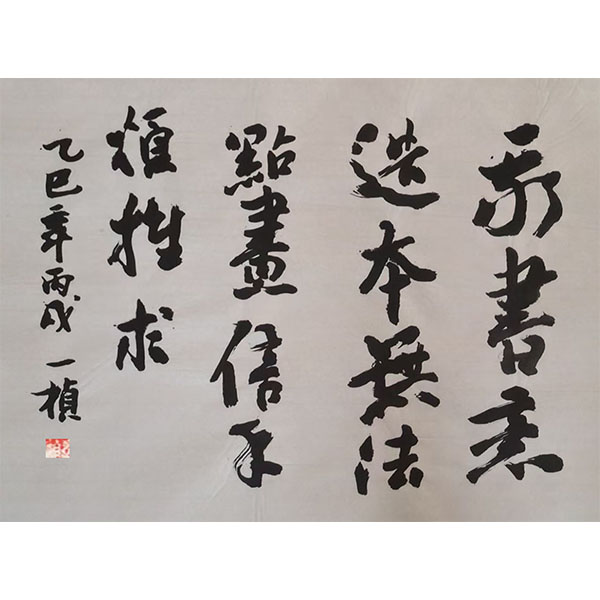 我書意
造本無法
點畫信手
煩推求
乙巳年丙戌一楨